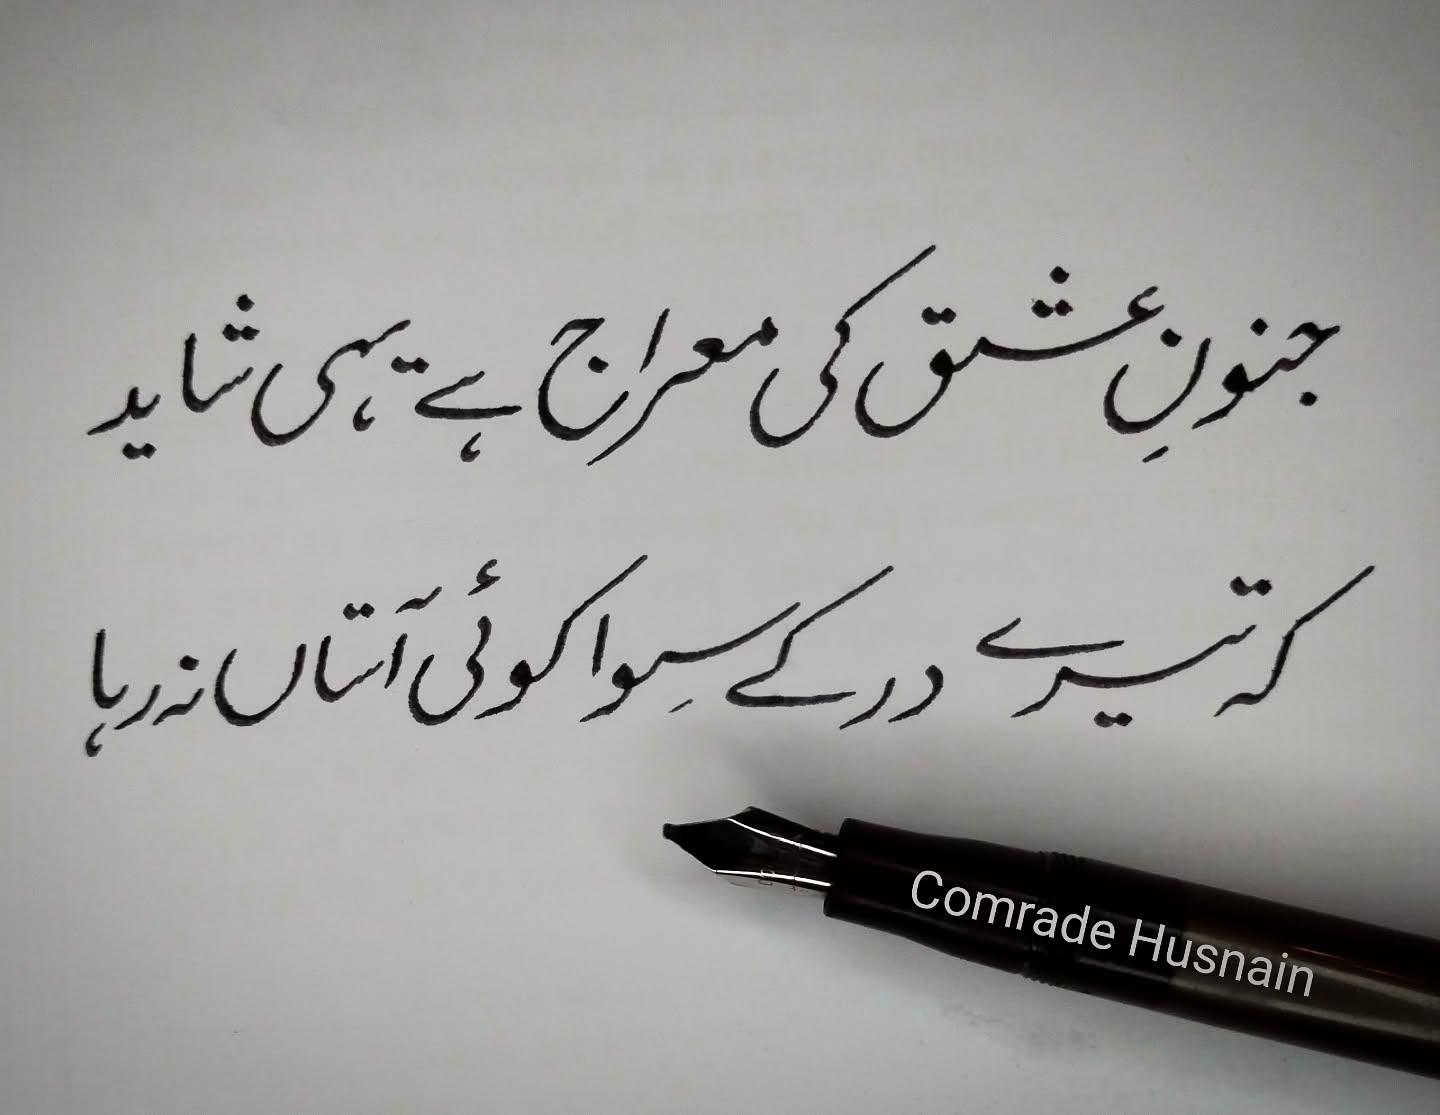 جنونِ عشق کی معراج ہے یہی شاید
کہ تیرے در کے سِوا کوئی آستاں نہ رہا
Comrade Husnain